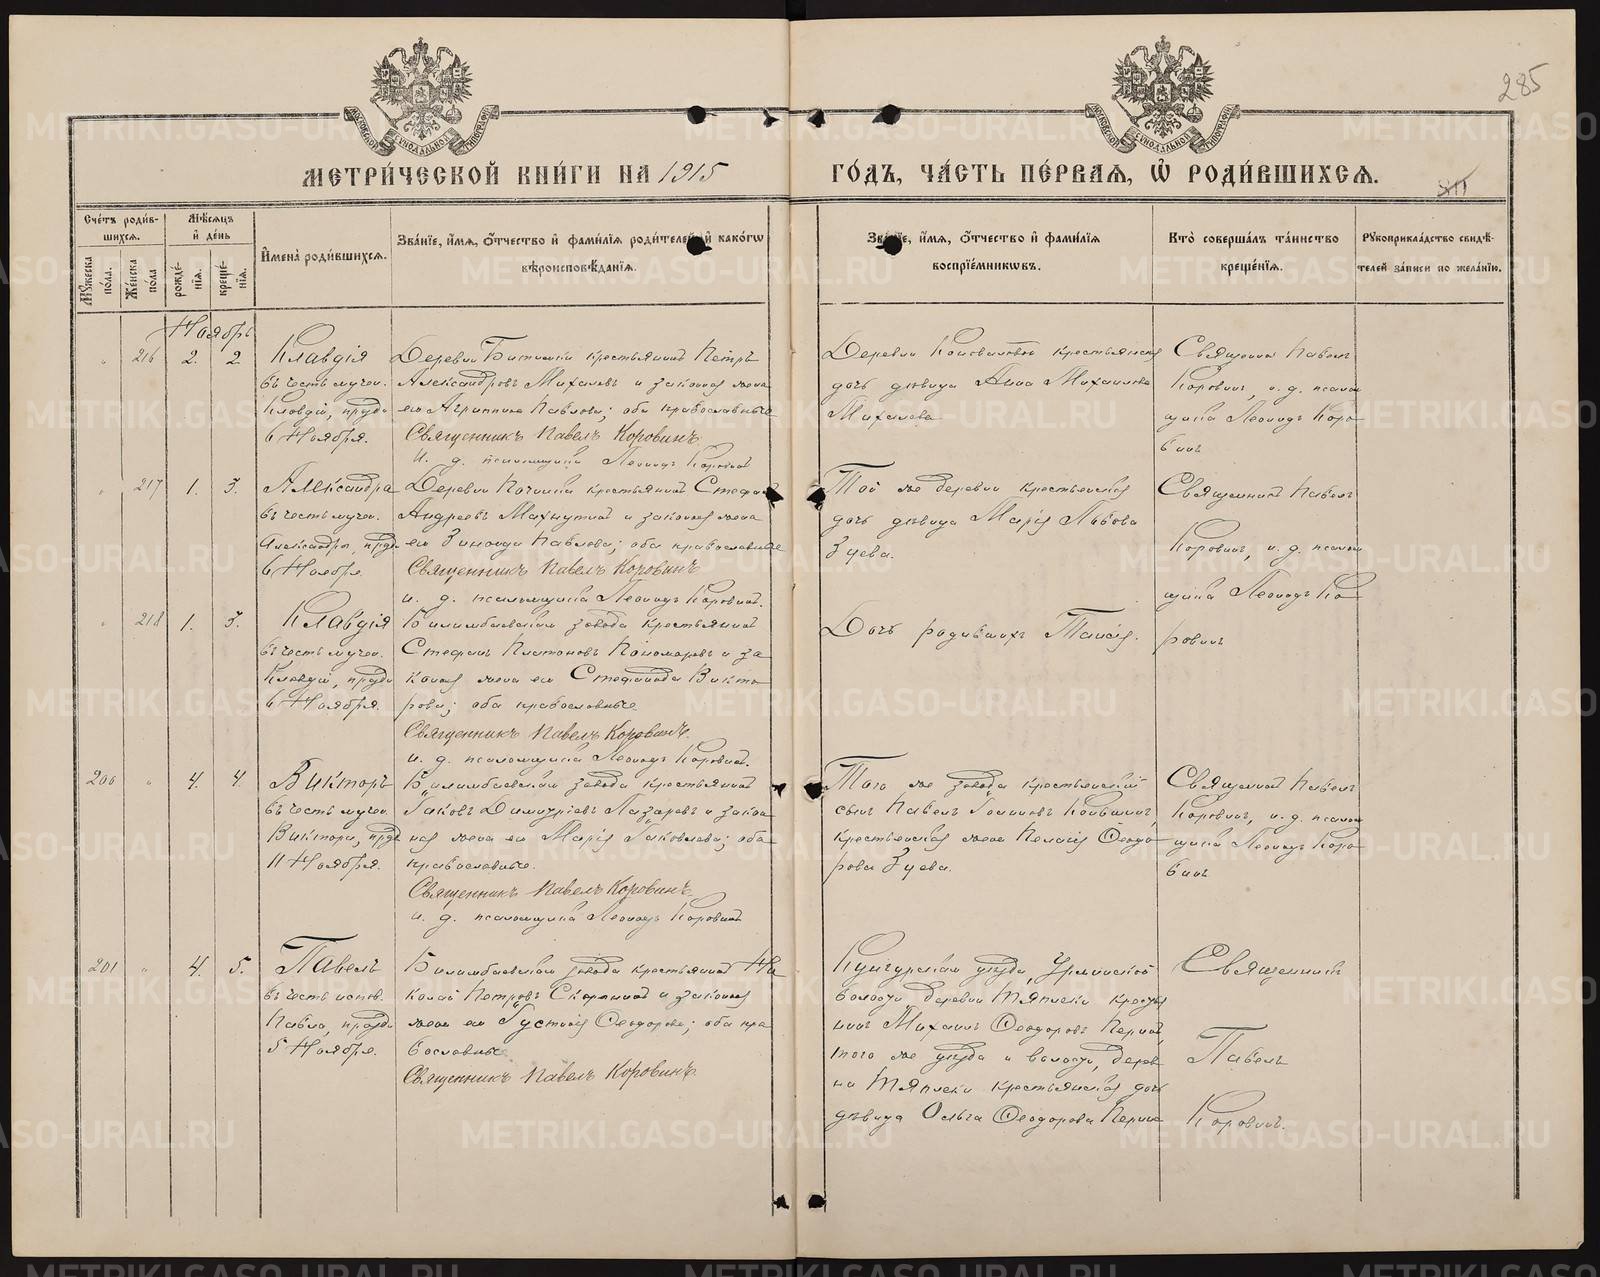 285
МОСКОВСКОЙ СѴНОДАЛЬНОЙ ТИПОГРАФІИ
МОСКОВСКОЙ СѴНОДАЛЬНОЙ ТИПОГРАФІИ
МЕТРИ́ЧЕСКОЙ КНИ́ГИ НА 1915
ГО́ДЪ, ЧА́СТЬ ПЕ́РВАѦ, Ѽ РОДИ́ВШИХСѦ.
Сче́тъ роди́в-
шихсѧ.
Мꙋ́жеска по́ла.
Же́нска по́ла
Мѣ́сѧцъ и҆ де́нь
рожде́-нїѧ.
креще́-нїѧ.
И҆мена̀ роди́вшихсѧ.
Зва́нїе, и҆́мѧ, ѻ҆́тчество и҆ фами́лїѧ роди́телей, и҆ како́гѡ
вѣроисповѣ́данїѧ.
Зва́нїе, и҆́мѧ, ѻ҆́тчество и҆ фами́лїѧ
воспрїе́мникѡвъ.
Кто̀ соверша́лъ та́инство
креще́нїѧ.
Рꙋкоприкла́дство свидѣ́-
телей за́писи по жела́нїю.
Ноябрь
" 216 2. 2.
Клавдія
въ честь мучен.
Клавдіи, празд.
6 Ноября.
Деревни Битимки крестьянинъ Петръ
Александровъ Михалевъ и законная жена
его Агриппина Павлова; оба православные
Священникъ Павелъ Коровинъ
И. д. псаломщика Леонидъ Коровинъ
Деревни крестьянская
дочь дѣвица Анна Михаилова
Михалева
Священникъ Павелъ
Коровинъ, и. д. псалом
щика Леонидъ Коро
винъ
" 217 1. 3.
Александра
въ честь мучен.
Александры, празд.
6 Ноября.
Деревни Починка крестьянинъ Стефанъ
Андреевъ Махнуткин и законная жена
его Зинаида Павлова; оба православные
Священникъ Павелъ Коровинъ
и. д. псаломщика Леонидъ Коровинъ.
Той же деревни крестьянская
дочь дѣвица Марія Львова
Зуева.
Священникъ Павелъ
Коровинъ, и. д. псалом
щика Леонидъ Ко
ровинъ
" 218 1. 3.
Клавдія
въ честь мучен.
Клавдіи, празд.
6 Ноября.
Билимбаевскаго завода крестьянинъ
Стефанъ Платоновъ Пономаревъ и за
конная жена его Стефанида Викто
рова; оба православные
Священникъ Павелъ Коровинъ.
и. д. псаломщика Леонидъ Коровинъ.
Дочь родившихъ Таисія.
200 " 4. 4.
Викторъ
въ честь мучен.
Виктора, празд.
11 Ноября.
Билимбаевскаго завода крестьянинъ
Іаковъ Димитріевъ Лазаревъ и закон
ная жена его Марія Іаковлева; оба
православные.
Священникъ Павелъ Коровинъ
и. д. псаломщика Леонидъ Коровинъ
Того же завода крестьянскій
сынъ Павелъ Іоанновъ
крестьянская жена Пелагія Ѳеодо
рова Зуева.
Священникъ Павелъ
Коровинъ, и. д. псалом
щика Леонидъ Коро
винъ
201 " 4. 5.
Павелъ
въ честь испов.
Павла, празд.
5 Ноября.
Билимбаевскаго завода крестьянинъ Ни
колай Петровъ Скорынинъ и законная
жена его Іустинія Ѳеодорова; оба пра
вославные
Священникъ Павелъ Коровинъ.
Кунгурскаго уѣзда, Урминской
волости, деревни Тяпсеки кресть
нинъ Михаилъ Ѳеодоровъ
того же уѣзда и волости, дерев
ни Тяпсеки крестьянская дочь
дѣвица Ольга Ѳеодорова
Священникъ
Павелъ
Коровинъ.
METRIKI.GASO-URAL.RU